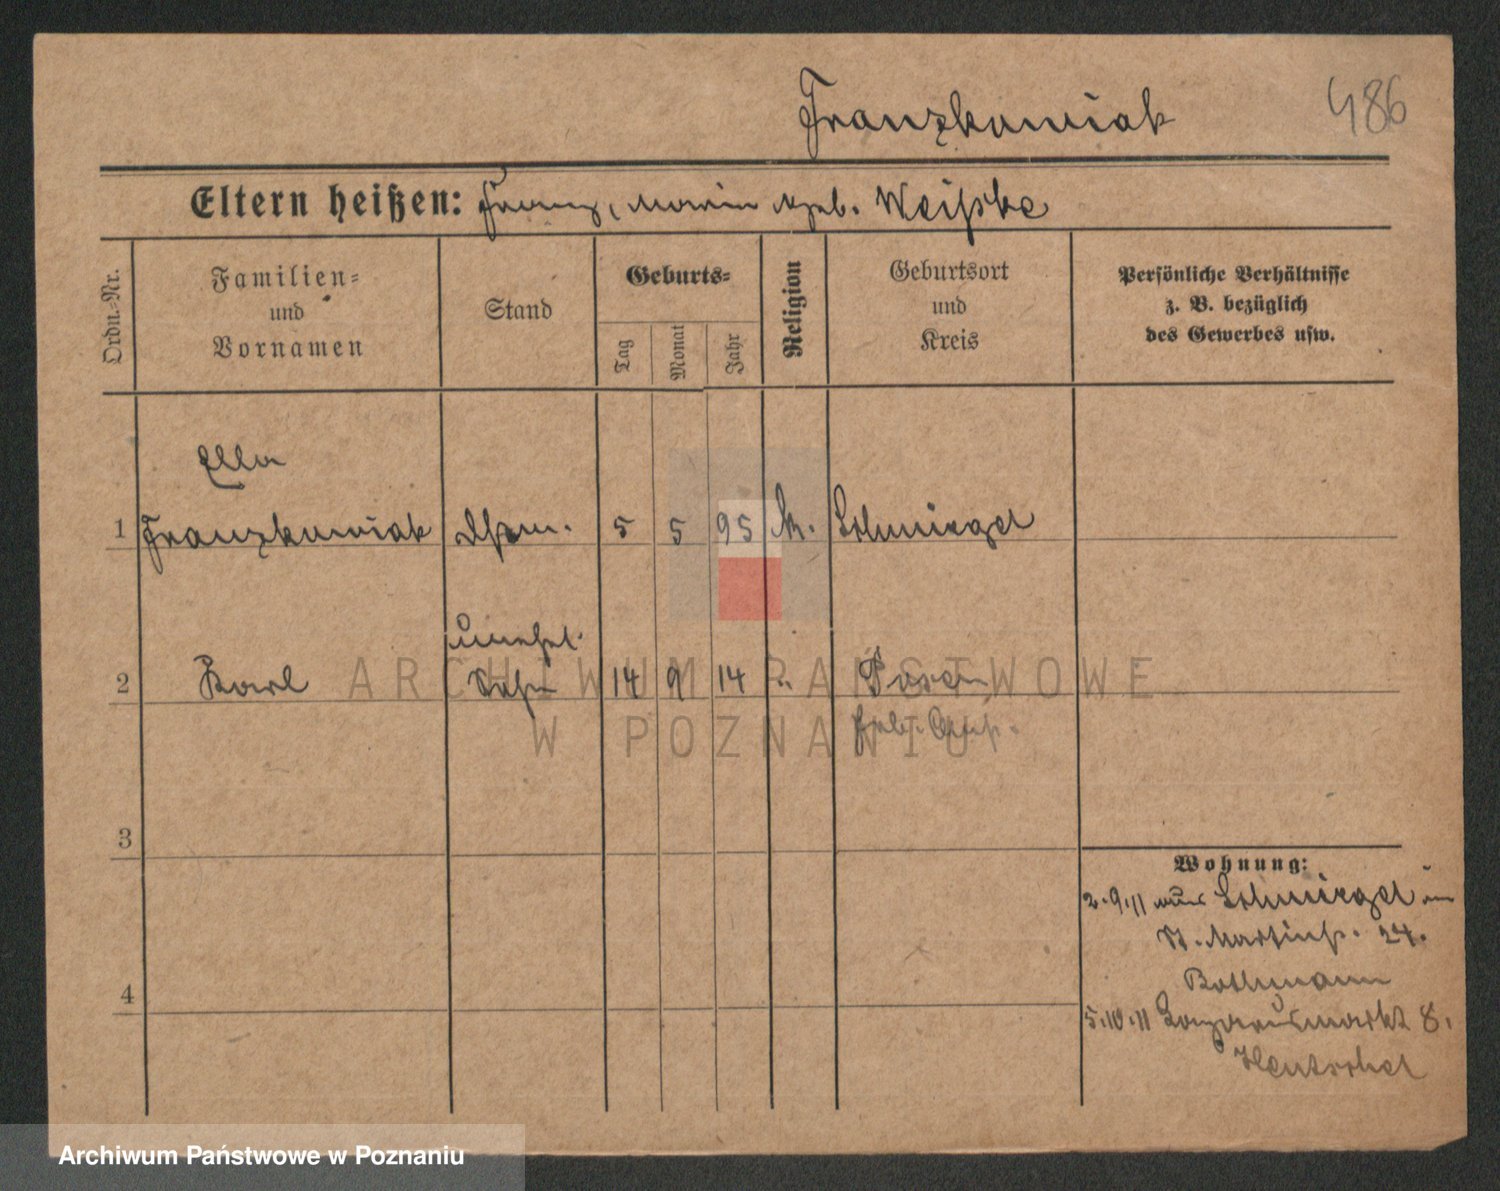 Franzkowiak
486
Eltern heißen: Franz, Marie geb. Weiske
Ordn.-Nr.
Familien-
und
Vornamen
Stand
Geburts-
Tag
Monat
Jahr
Religion
Geburtsort
und
Kreis
Persönliche Verhältnisse
z. B. bezüglich
des Gewerbes usw.
Ella
1 Franzkowiak 5 5 95 k. Schmiegel
unehel.
2 Karl Sohn 14 9 14 " Posen
3
4
Wohnung:
2.9.11 aus Schmiegel in
St. Martinstr. 24.
Bothmann
5.10.11 Lazarusmarkt 8.
Hentschel
ARCHIWUM PAŃSTWOWE
W POZNANIU
Archiwum Państwowe w Poznaniu